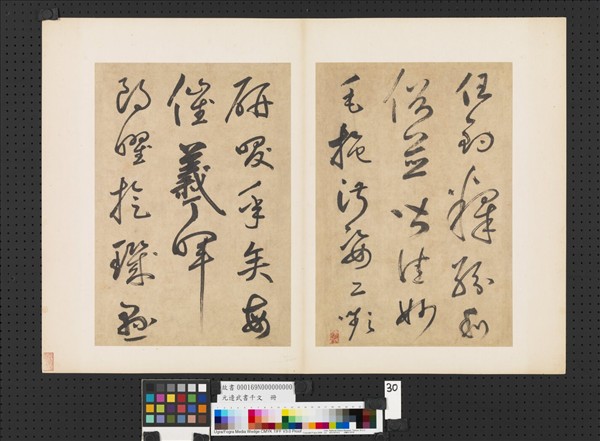 任釣釋紛利
俗並皆佳妙
毛施淑姿工顰
妍笑年矢每
催羲暉
朗曜旋璣懸
故書 000169N000000000
元邊武書千文 冊
30